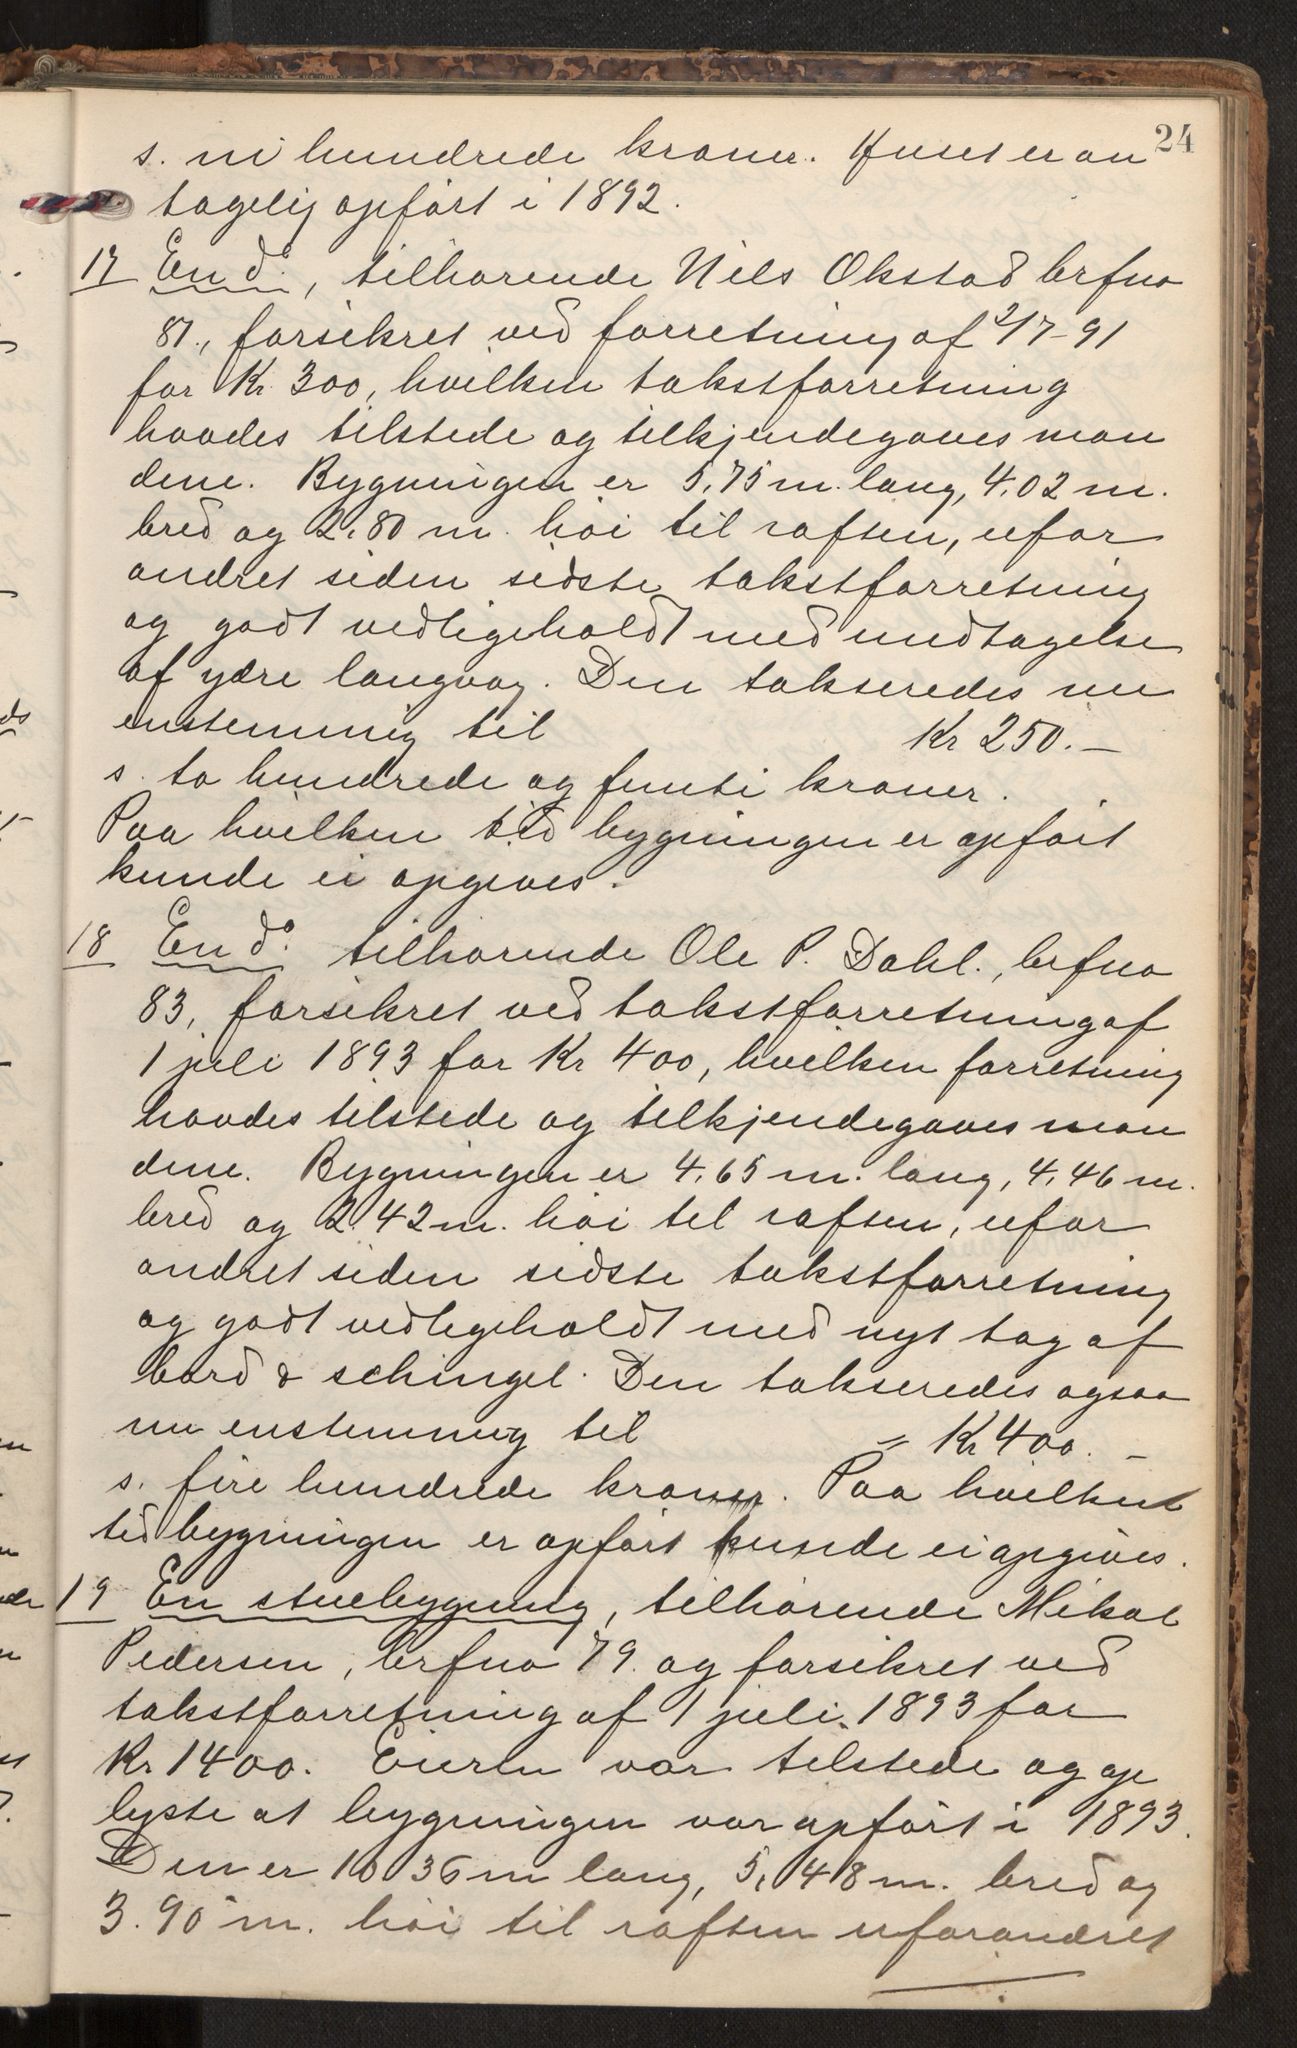 24
s. ni hundrede kroner. Huset er an
tagelig opført i 1892.
17 En do., tilhørende Nils Okstad brfno
81., forsikret ved forretning af 2/7-91
for Kr. 300, hvilken takstforretning
havdes tilstede og tilkjendegaves mæn
dene. Bygningen er 5,75 m. lang, 4,02 m.
bred og 2,80 m. høi til raften, ufor
andret siden sidste takstforretning
og godt vedligeholdt med undtagelse
af ydre langvæg. Den takseredes nu
enstemmig til Kr 250.—
s. to hundrede og femti kroner.
Paa hvilken tid bygningen er opført
kunde ei opgives.
18 En do. tilhørende Ole P. Dahl., brfno
83, forsikret ved takstforretning af
1 juli 1893 for Kr 400, hvilken forretning
havdes tilstede og tilkjendegaves mæn
dene. Bygningen er 4,65 m. lang, 4,46 m.
bred og 2.42 m. høi til raften, ufor
andret siden sidste takstforretning
og godt vedligeholdt med nyt tag af
bord & schingel. Den takseredes ogsaa
nu enstemmig til = Kr 400.—
s. fire hundrede kroner. Paa hvilken
tid bygningen er opført kunde ei opgives.
19 En stuebygning, tilhørende Mikal
Pedersen, brfno 79. og forsikret ved
takstforretning af 1 juli 1893 for
Kr 1400. Eieren var tilstede og op
lyste at bygningen var opført i 1893.
Den er 10 36 m lang, 5,48 m. bred og
3.90 m. høi til raften uforandret